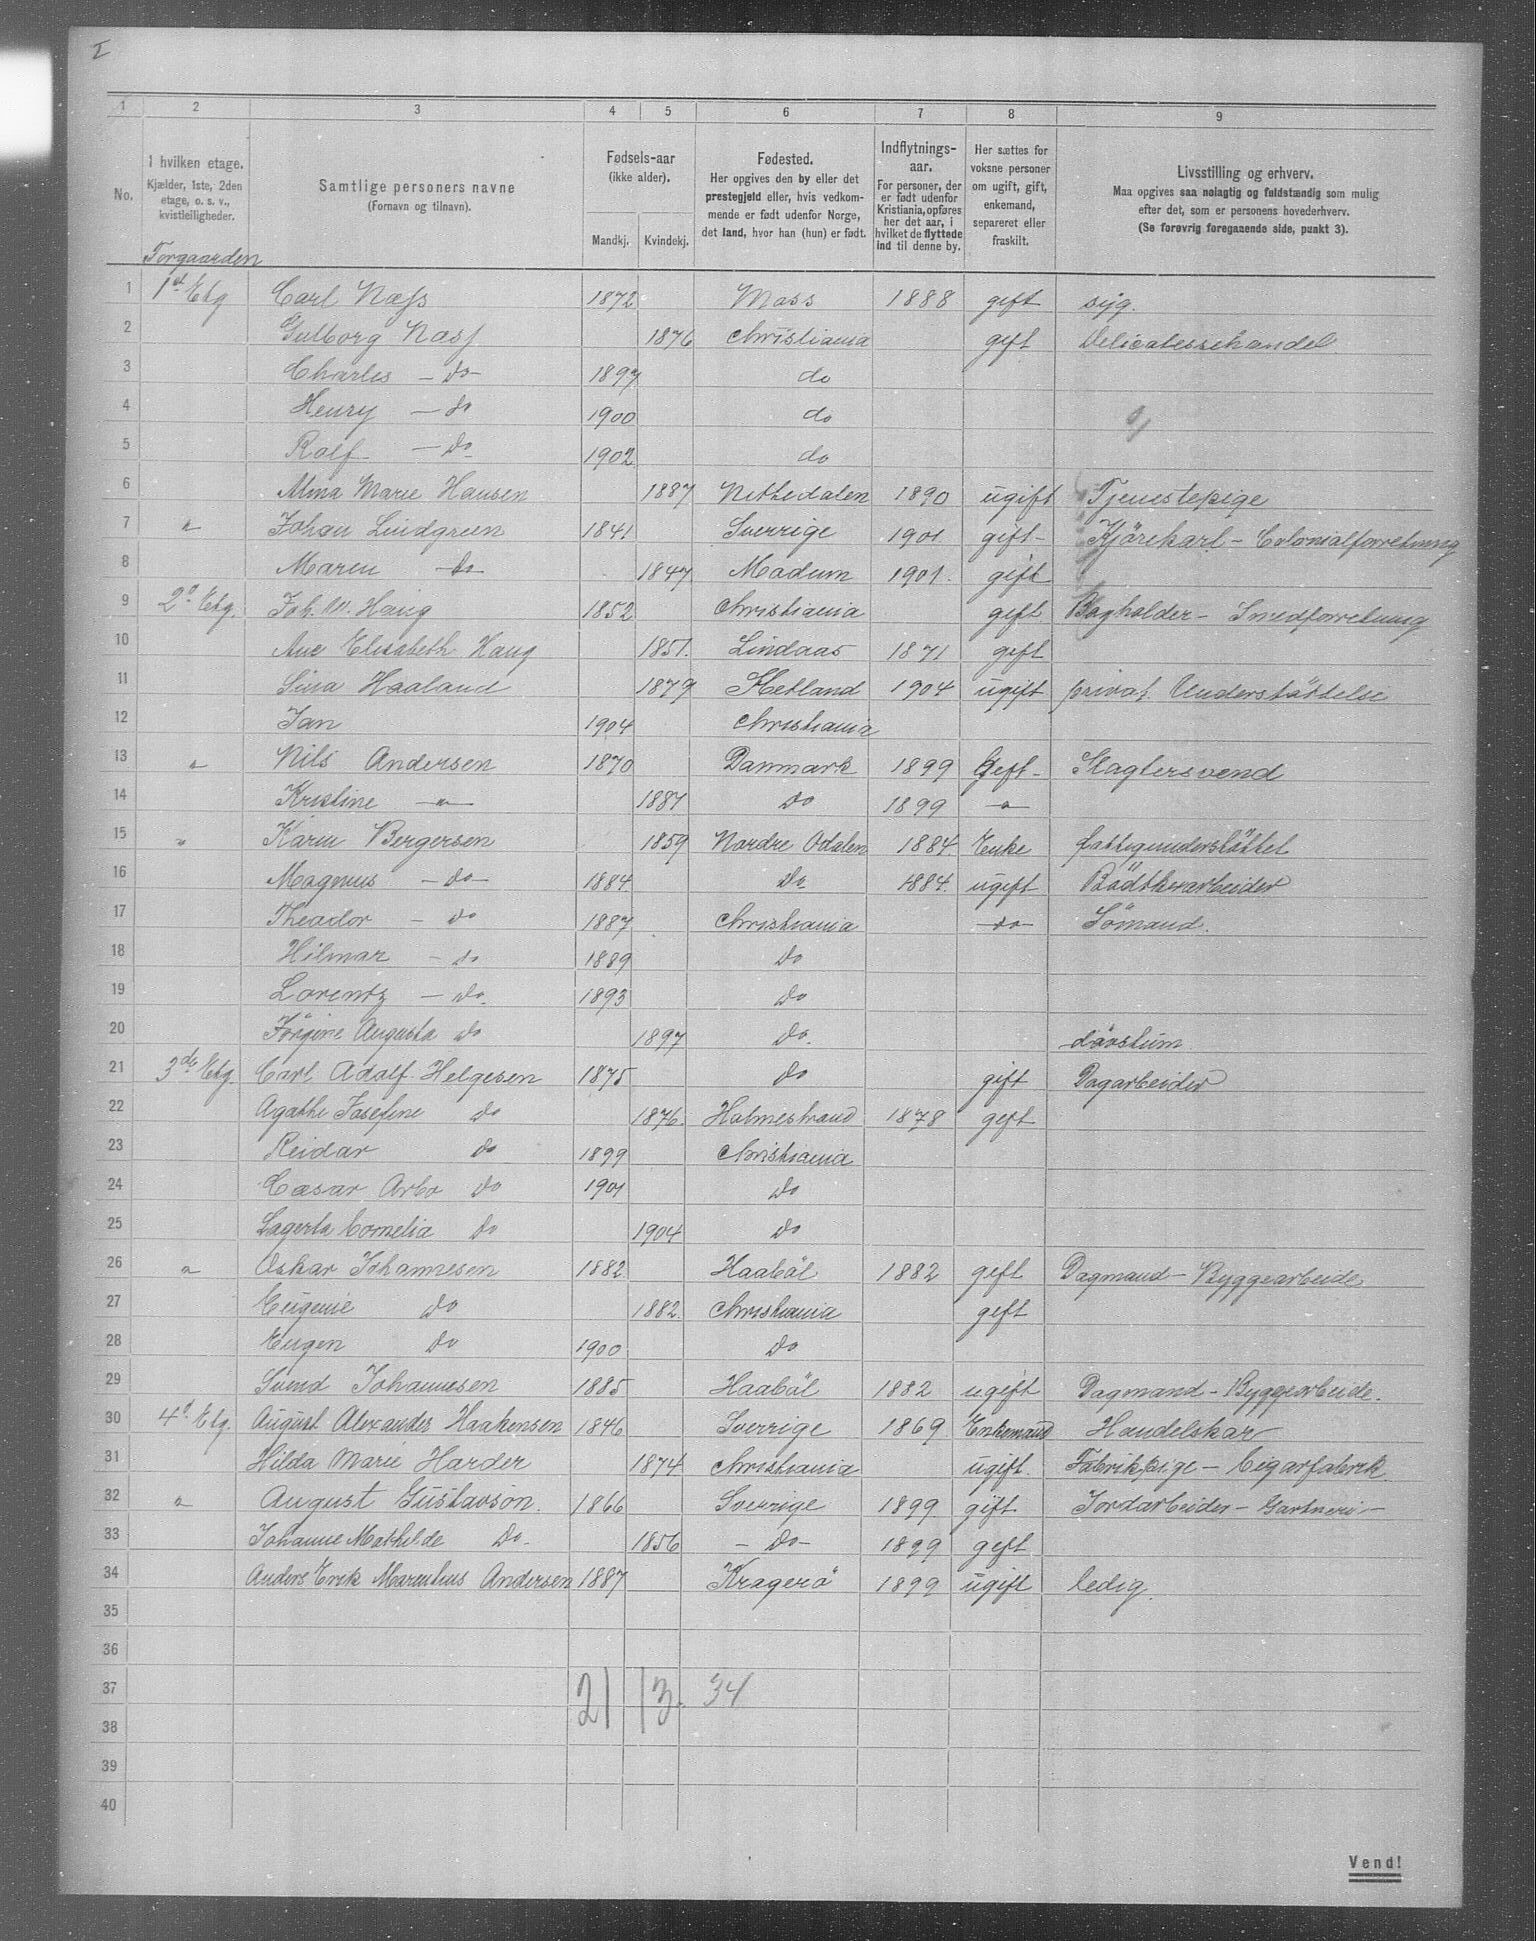 I
1 2 3 4 5 6 7 8 9
No.
I hvilken etage.
Kjælder, 1ste, 2den
etage, o. s. v.,
kvistleiligheder.
Samtlige personers navne
(Fornavn og tilnavn).
Fødsels-aar
(ikke alder).
Mandkj. Kvindekj.
Fødested.
Her opgives den by eller det
prestegjeld eller, hvis vedkom-
mende er født udenfor Norge,
det land, hvor han (hun) er født.
Indflytnings-
aar.
For personer, der
er født udenfor
Kristiania, opføres
her det aar, i
hvilket de flyttede
ind til denne by.
Her sættes for
voksne personer
om ugift, gift,
enkemand,
separeret eller
fraskilt.
Livsstilling og erhverv.
Maa opgives saa nøiagtig og fuldstændig som mulig
efter det, som er personens hovederhverv.
(Se forøvrig foregaaende side, punkt 3).
Forgaarden
1 1st Etg Carl Næss 1872 Moss 1888 gift syg.
2 Gulborg Næss 1876 Christiania gift Delicatessehandel
3 Charles - Do - 1897 do
4 Henry - do 1900 do
5 Rolf - Do 1902 do
6 Alma Marie Hansen 1887 Nittedalen 1890 ugift Tjenestepige
7 " Johan Lindgreen 1841 Sverrige 1901 gift - Kjörekarl - Colonialforretning
8 Maren Do 1847 Modum 1901. gift
9 2d Etg. Joh. M. Haug 1852 Christiania gift Bogholder - Smedforretning
10 Ane Elisabeth Haug 1851. Lindaas 1871 gift
11 Sina Haaland 1879 Hetland 1904 ugift privat Understöttelse
12 Jan 1904 Christiania
13 " Nils Andersen 1870 Danmark 1899 Gift - Slagtersvend
14 Kristine - " - 1881 Do 1899 - " -
15 " Karin Bergersen 1859 Nordre Odalen 1884 Enke fattigunderstöttet
16 Magnus - Do - 1884 Do 1884. ugift Bödtkerarbeider
17 Theodor - Do 1887 Christiania - do - Sömand.
18 Hilmar - do 1889 Do
19 Lorentz - Do. 1893 Do
20 Jörgine Augusta Do 1897 Do. dövstum
21 3de Etg. Carl Adolf Helgesen 1875 Do gift Dagarbeider
22 Agathe Josefine Do 1876. Holmestrand 1878 gift
23 Reidar Do 1899 Christiania
24 Cæsar Arbo Do 1901 Do
25 Lagerta Cornelia Do 1904 Do
26 " Oskar Johannesen 1882 Haaböl 1882 gift Dagmand - Byggearbeide
27 Eugenie Do 1882. Christiania gift
28 Eugen Do 1900 Do
29 Svend Johannesen 1885 Haaböl 1882 ugift Dagmand - Byggearbeide.
30 4d Etg. August Alexander Haakensen 1846 Sverrige 1869 Enkemand Handelskar
31 Hilda Marie Harder 1874 Christiania ugift. Fabrikpige - Cigarfabrik
32 " August Gustavson. 1866 Sverrige 1899 gift Jordarbeider - Gartneri -
33 Johanne Mathilde Do - 1856 - Do - 1899 gift
34 Anders Erik Marenhus Andersen 1887 Kragerö 1899 ugift ledig.
35
36
37 21 13. 34
38
39
40
Vend!